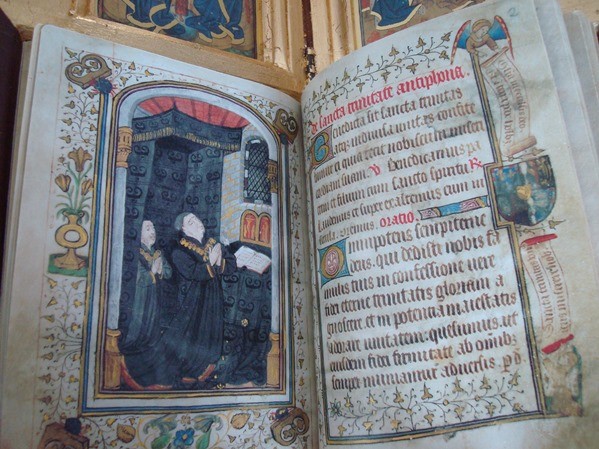 2
de sancta trinitate antiphona.
Benedicta sit sancta trinitas
atq; indiuisa unitas confite
mur ei quia fecit nobiscum miseri
cordiam suam. V Benedicamus pa
trem et filium cum sancto spiritu R
Laudemus et superexaltemus eum in
secula. Oremus. oratio
Omnipotens sempiterne
deus. qui dedisti nobis fa
mulis tuis in confessione uere
fidei eterne trinitatis gloriam a
gnoscere. et in potentia maiestatis
adorare unitatem. quesumus. ut
eiusdem fidei firmitate ab omnib;
semper muniamur aduersis. p d